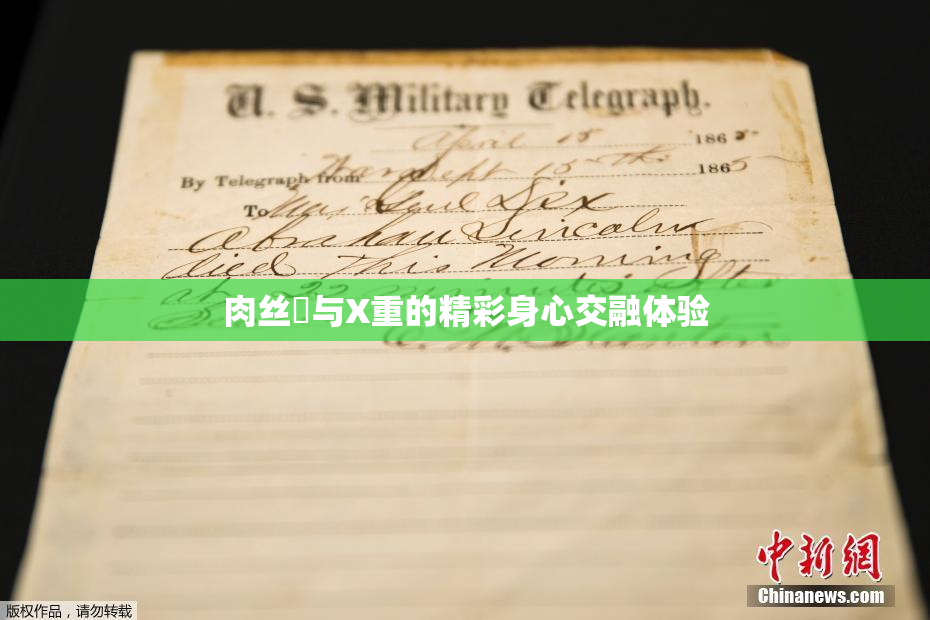 U. S. Military Telegraph.
April 15 1865
By Telegraph from War Dept 15th 1865
To Maj Genl Dix
Abraham Lincoln
died This Morning
at 22 minutes after
肉丝与X重的精彩身心交融体验
中新网
Chinanews.com
版权作品，请勿转载